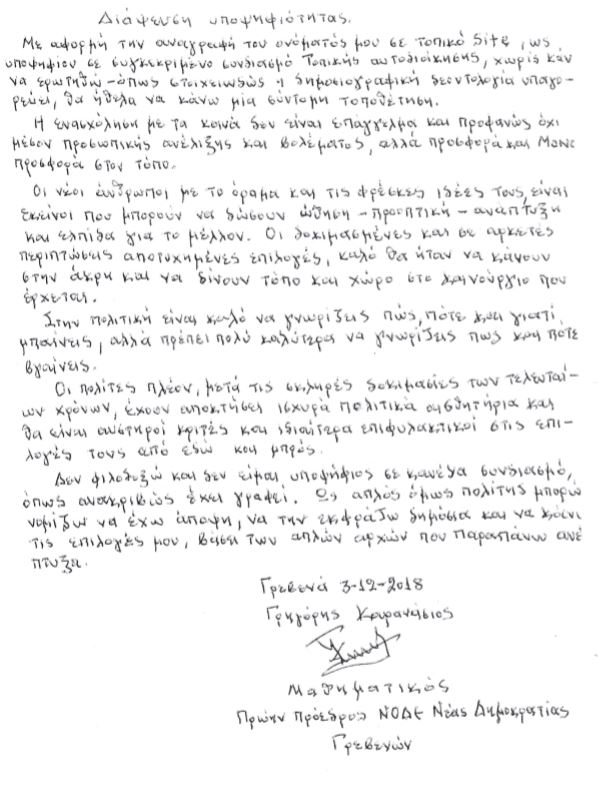 Διάψευση υποψηφιότητας.
Με αφορμή την αναγραφή του ονόματός μου σε τοπικό Site, ως
υποψηφίου σε συγκεκριμένο συνδιασμό Τοπικής αυτοδιοίκησης, χωρίς κάν
να ερωτηθώ - όπως στοιχειωδώς η δημοσιογραφική δεοντολογία υπαγο-
ρεύει, θα ήθελα να κάνω μία σύντομη τοποθέτηση.
Η ενασχόληση με τα κοινά δεν είναι επάγγελμα και προφανώς όχι
μέσον προσωπικής ανέλιξης και βολέματος, αλλά προσφορά και μόνο
προσφορά στον τόπο.
Οι νέοι άνθρωποι με το όραμα και τις φρέσκες ιδέες τους, είναι
εκείνοι που μπορούν να δώσουν ώθηση - προοπτική - ανάπτυξη
και ελπίδα για το μέλλον. Οι δοκιμασμένες και σε αρκετές
περιπτώσεις αποτυχημένες επιλογές, καλό θα ήταν να κάνουν
στην άκρη και να δίνουν τόπο και χώρο στο καινούργιο που
έρχεται.
Στην πολιτική είναι καλό να γνωρίζεις πώς, πότε και γιατί
μπαίνεις, αλλά πρέπει πολύ καλύτερα να γνωρίζεις πως και πότε
βγαίνεις.
Οι πολίτες πλέον, μετά τις σκληρές δοκιμασίες των τελευταί-
ων χρόνων, έχουν αποκτήσει ισχυρά πολιτικά αισθητήρια και
θα είναι αυστηροί κριτές και ιδιαίτερα επιφυλακτικοί στις επι-
λογές τους από εδώ και μπρός.
Δεν φιλοδοξώ και δεν είμαι υποψήφιος σε κανένα συνδιασμό,
όπως ανακριβώς έχει γραφεί. Ως απλός όμως πολίτης μπορώ
νομίζω να έχω άποψη, να την εκφράζω δημόσια και να κάνω
τις επιλογές μου, βάσει των απλών αρχών που παραπάνω ανέ
πτυξα.
Γρεβενά 3-12-2018
Γρηγόρης Καρανάσιος
Μαθηματικός
Πρώην πρόεδρος ΝΟΔΕ Νέας Δημοκρατίας
Γρεβενών